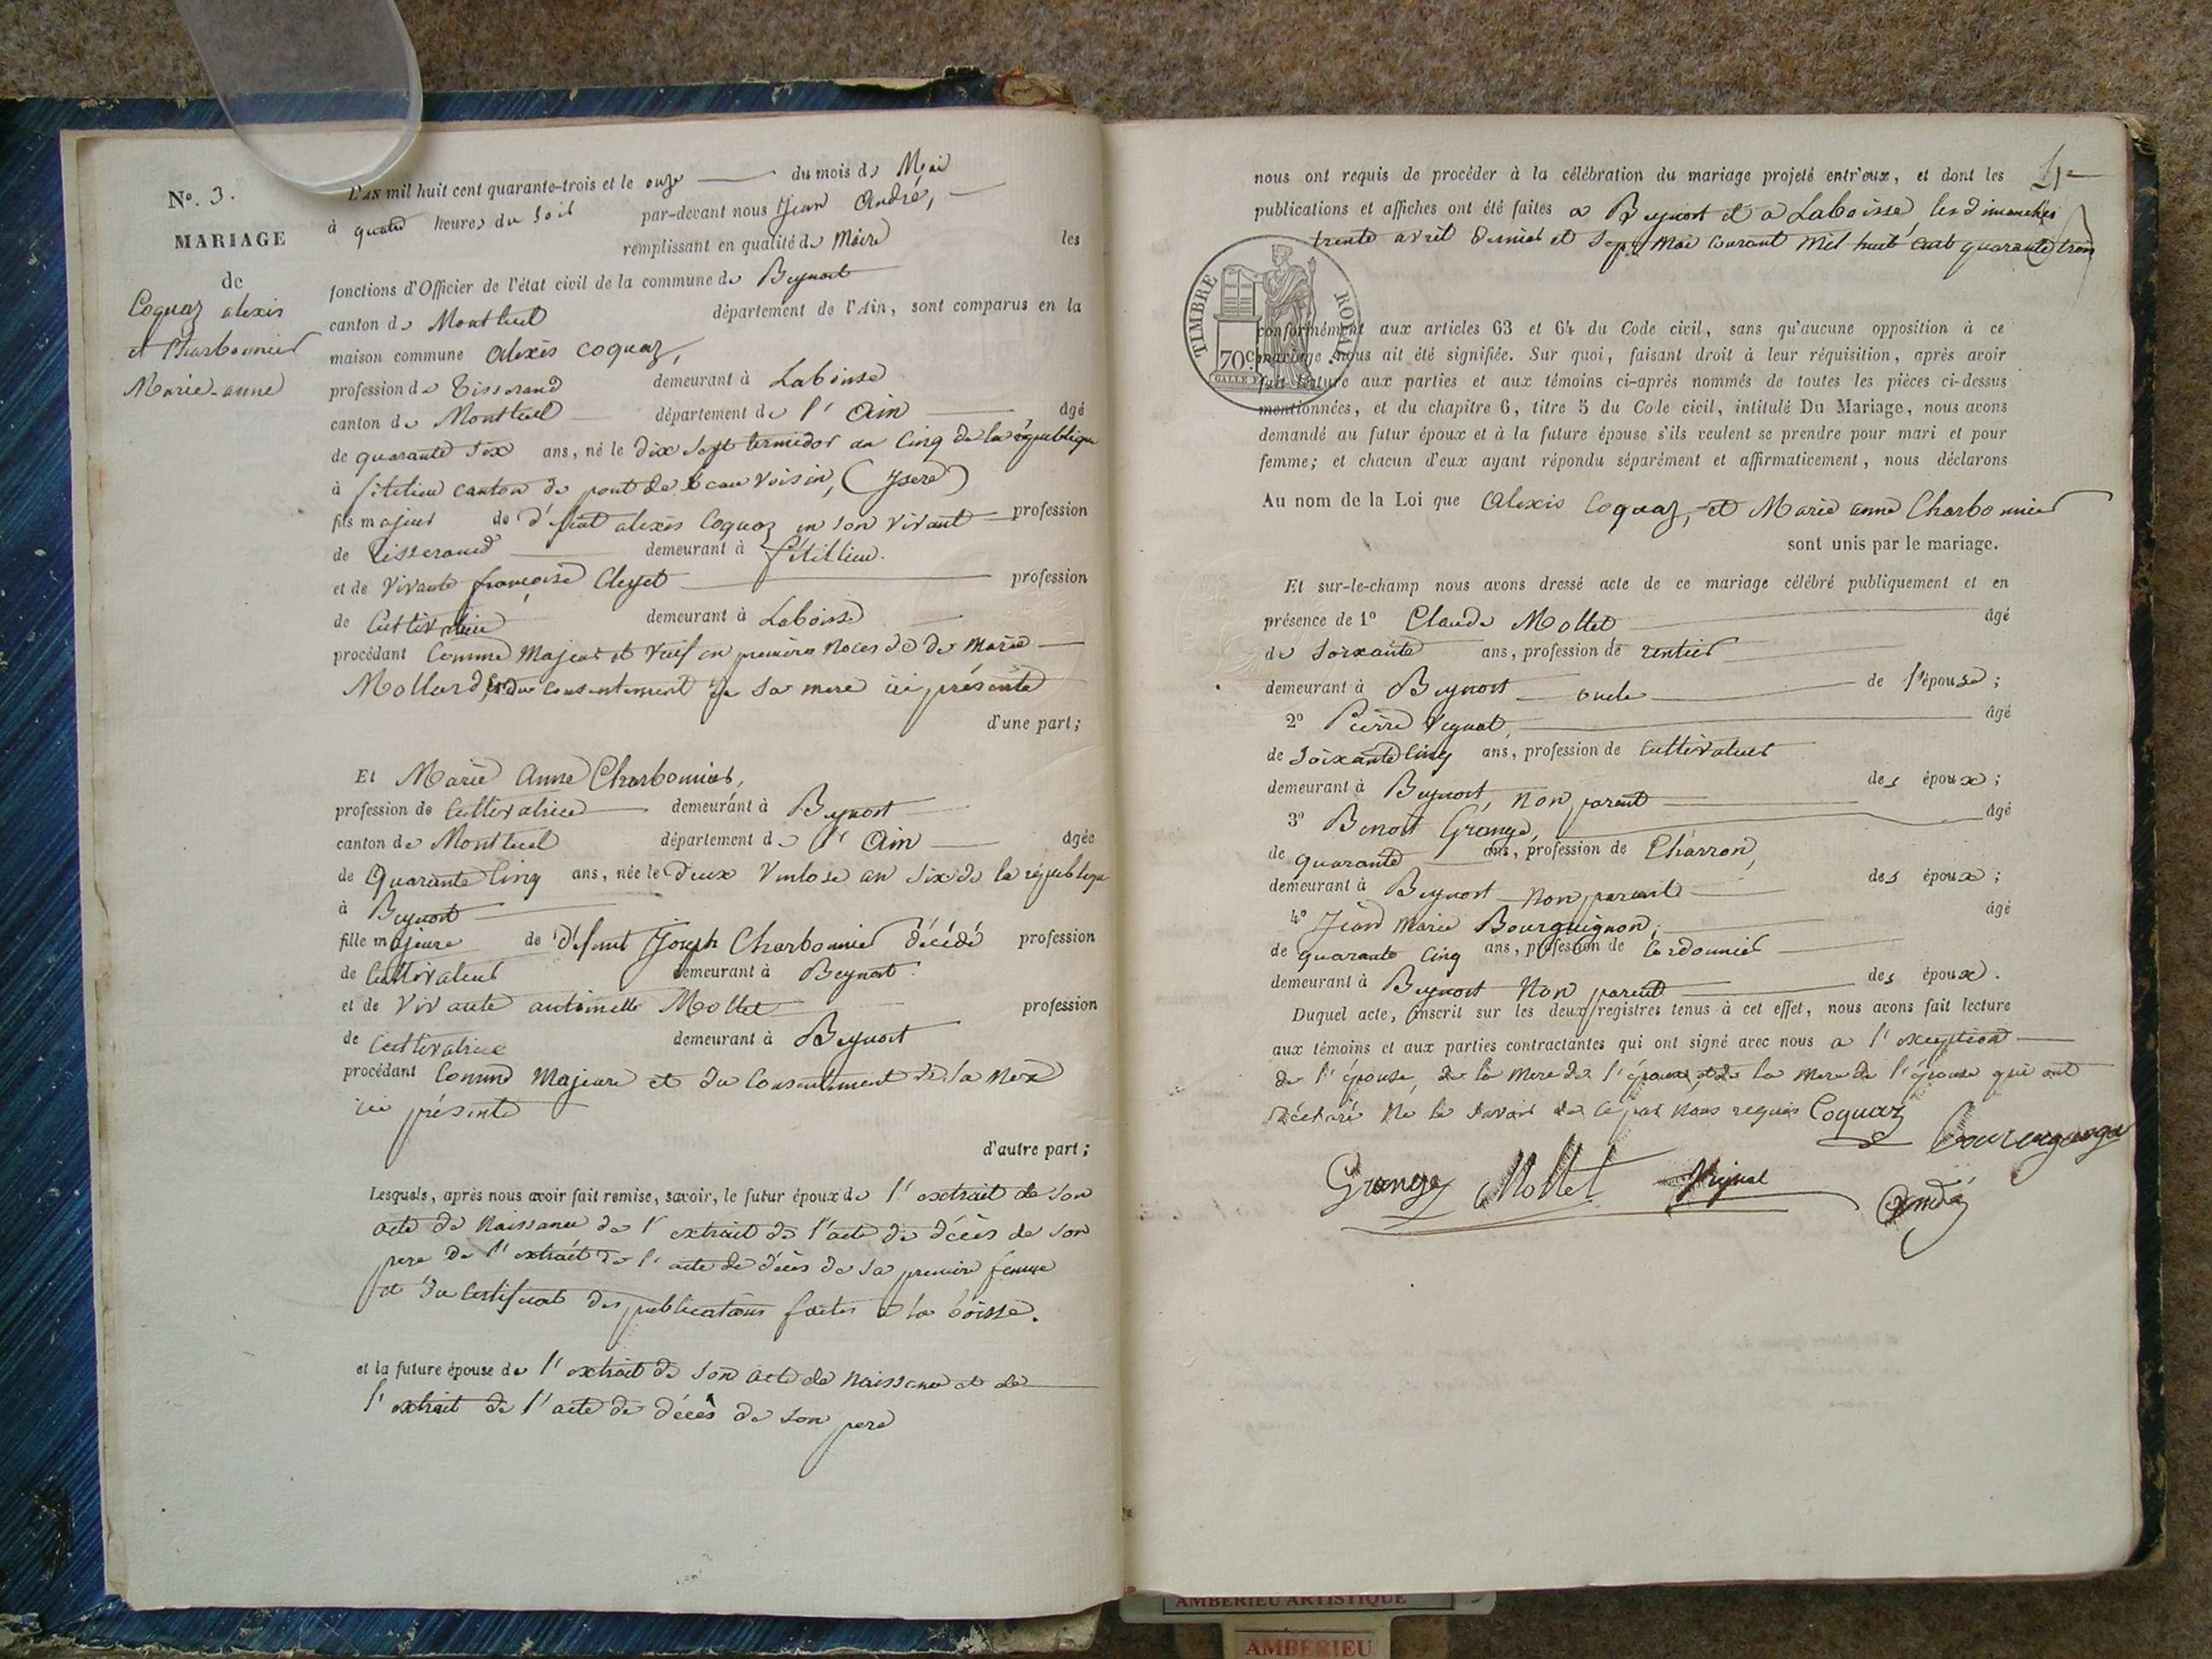 N°. 3.
MARIAGE
de
Coquaz alexis
et Charbonnier
Marie-anne
L'AN mil huit cent quarante-trois et le onze du mois de Mai
à quatre heures du soir par-devant nous Jean André,
remplissant en qualité de Maire les
fonctions d'Officier de l'état civil de la commune de Beynost
canton de Montluel département de l'Ain, sont comparus en la
maison commune alexis Coquaz,
profession de Tisserand demeurant à Laboisse
canton de Montluel département de l'Ain âgé
de quarante six ans, né le dix sept termidor an Cinq de la république
à fitilieu canton de pont de beauvoisin, (Isere)
fils majeur de défunt alexis Coquaz en son vivant profession
de Tisserand demeurant à fitilieu.
et de vivante françoise Cleyet profession
de Cultivatrice demeurant à Laboisse
procédant Comme Majeur et veuf en premières noces de Marie
Mollard, et du consentement de sa mere ici présente
d'une part;
Et Marie Anne Charbonnier,
profession de Cultivatrice demeurant à Beynost
canton de Montluel département de l'Ain âgée
de Quarante Cinq ans, née le deux Ventose an six de la république
à Beynost
fille majeure de défunt Joseph Charbonnier décédé profession
de Cultivateur demeurant à Beynost.
et de vivante antoinette Mollet profession
de Cultivatrice demeurant à Beynost
procédant Comme Majeure et du Consentement de sa Mere
ici présente
d'autre part;
Lesquels, après nous avoir fait remise, savoir, le futur époux de l'extrait de son
acte de Naissance de l'extrait de l'acte de décès de son
pere de l'extrait de l'acte de décès de sa premiere femme
et du Certificat des publications faites a la boisse.
et la future épouse de l'extrait de son acte de naissance et de
l'extrait de l'acte de décès de son pere
4
nous ont requis de procéder à la célébration du mariage projeté entr'eux, et dont les
publications et affiches ont été faites a Beynost et a Laboisse les dimanches
trente avril dernier et sept Mai courant Mil huit cent quarante trois
TIMBRE ROYAL
70c
conformément aux articles 63 et 64 du Code civil, sans qu'aucune opposition à ce
mariage nous ait été signifiée. Sur quoi, faisant droit à leur réquisition, après avoir
fait lecture aux parties et aux témoins ci-après nommés de toutes les pièces ci-dessus
mentionnées, et du chapitre 6, titre 5 du Code civil, intitulé Du Mariage, nous avons
demandé au futur époux et à la future épouse s'ils veulent se prendre pour mari et pour
femme; et chacun d'eux ayant répondu séparément et affirmativement, nous déclarons
Au nom de la Loi que Alexis Coquaz, et Marie anne Charbonnier
sont unis par le mariage.
Et sur-le-champ nous avons dressé acte de ce mariage célébré publiquement et en
présence de 1° Claude Mollet âgé
de Soixante ans, profession de rentier
demeurant à Beynost oncle de l'épouse;
2° Pierre Vignat, âgé
de Soixante Cinq ans, profession de Cultivateur
demeurant à Beynost, non parent des époux;
3° Benoit Grange, âgé
de quarante ans, profession de Charron,
demeurant à Beynost non parent des époux;
4° Jean Marie Bourguignon, âgé
de quarante Cinq ans, profession de Cordonnier
demeurant à Beynost Non parent des époux.
Duquel acte, inscrit sur les deux registres tenus à cet effet, nous avons fait lecture
aux témoins et aux parties contractantes qui ont signé avec nous a l'exception
de l'épouse, de la mere de l'époux et de la mere de l'épouse qui ont
déclaré Ne le savoir de ce par nous requis Coquaz
Grange Mollet Vignat André
AMBERIEU ARTISTIQUE
AMBERIEU